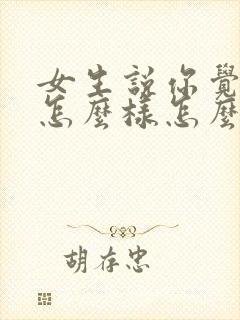 女生說你覺
怎麼樣怎麼
胡存忠